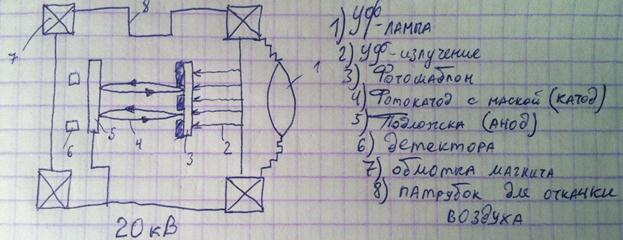 8
7
1
6
5
4
3
2
20 кВ
1) УФ-
-ЛАМПА
2) УФ-излучение
3) Фотошаблон
4) Фотокатод с маской (катод)
5) Подложка (АНОД)
6) детектора
7) обмотка магнита
8) ПАТРУБОК ДЛЯ ОТКАЧКИ
ВОЗДУХА